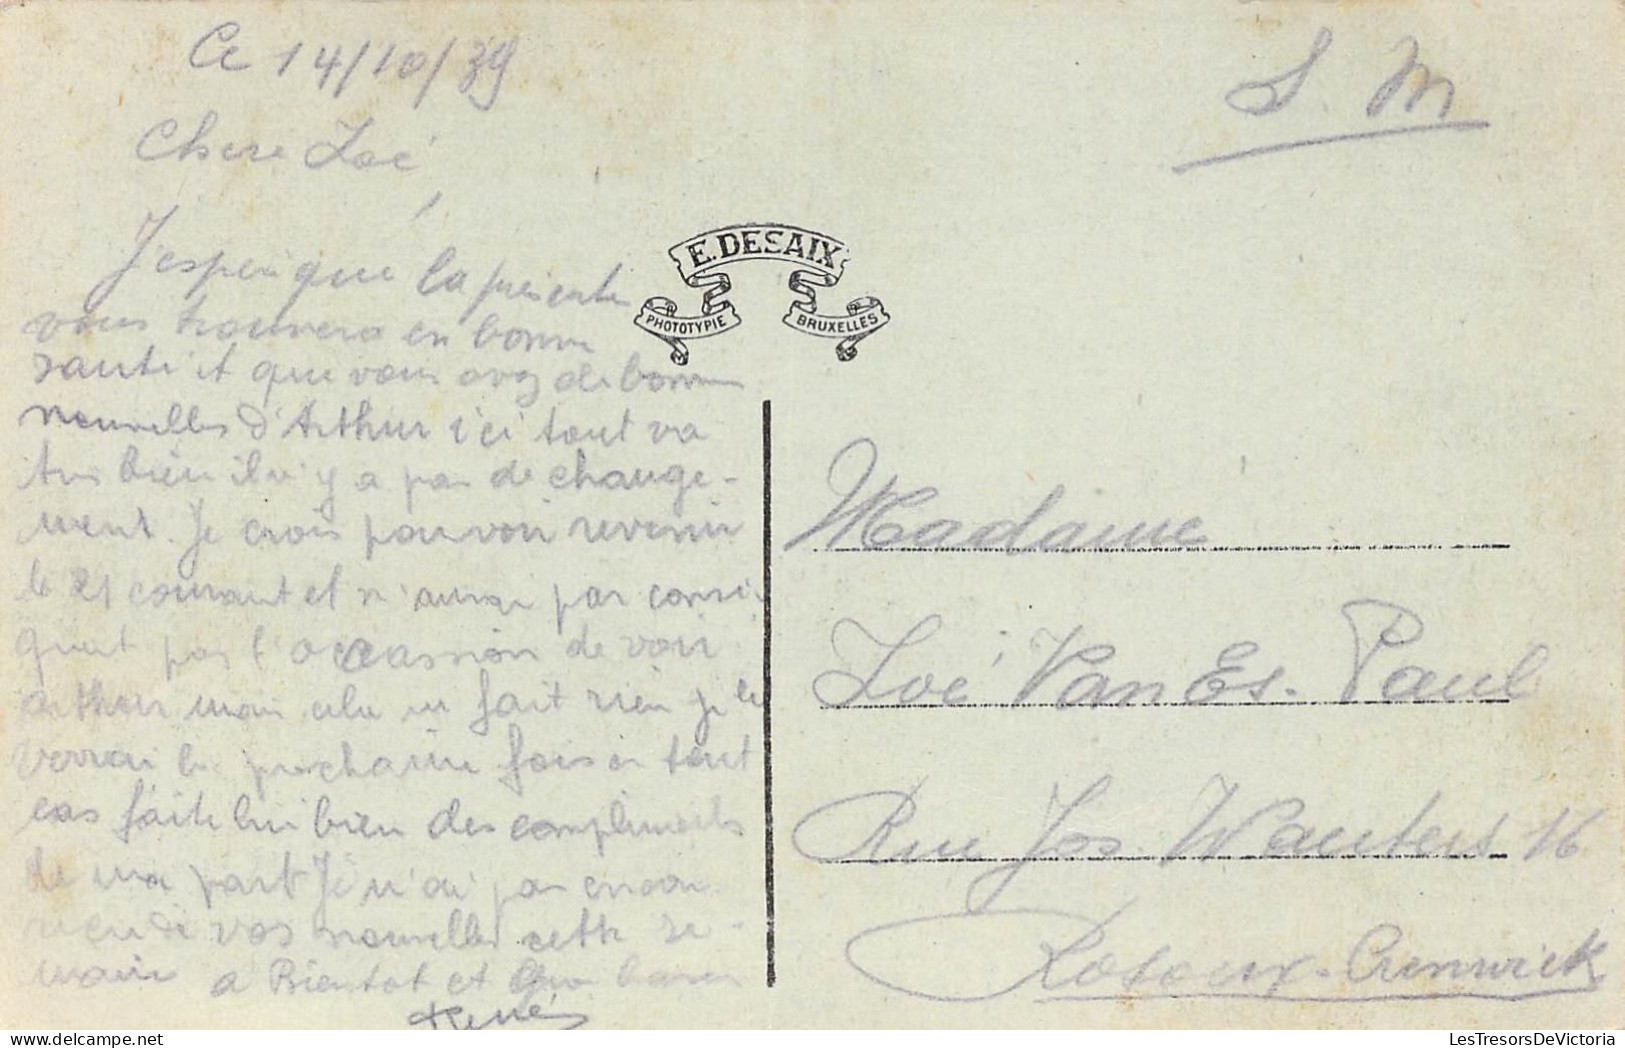 Ce 14/10/39
Chere Zoé,
J'espère que la présente
vous trouvera en bonne
santé et que vous avez de bonnes
nouvelles d'Arthur ici tout va
très bien il n'y a pas de change-
ment. Je crois pouvoir revenir
le 21 courant et n'aurai par consé
quent pas l'occassion de voir
arthur mais cela ne fait rien je le
verrai la prochaine fois en tout
cas faite lui bien des compliments
de ma part Je n'ai pas encore
vos nouvelles cette se-
maine a Bientot et
René
E. DESAIX
PHOTOTYPIE BRUXELLES
S. M
Madame
Zoé Van Es. Paul
Rue Jos Wauters 16
Rosoux-Crenwick
LesTresorsDeVictoria